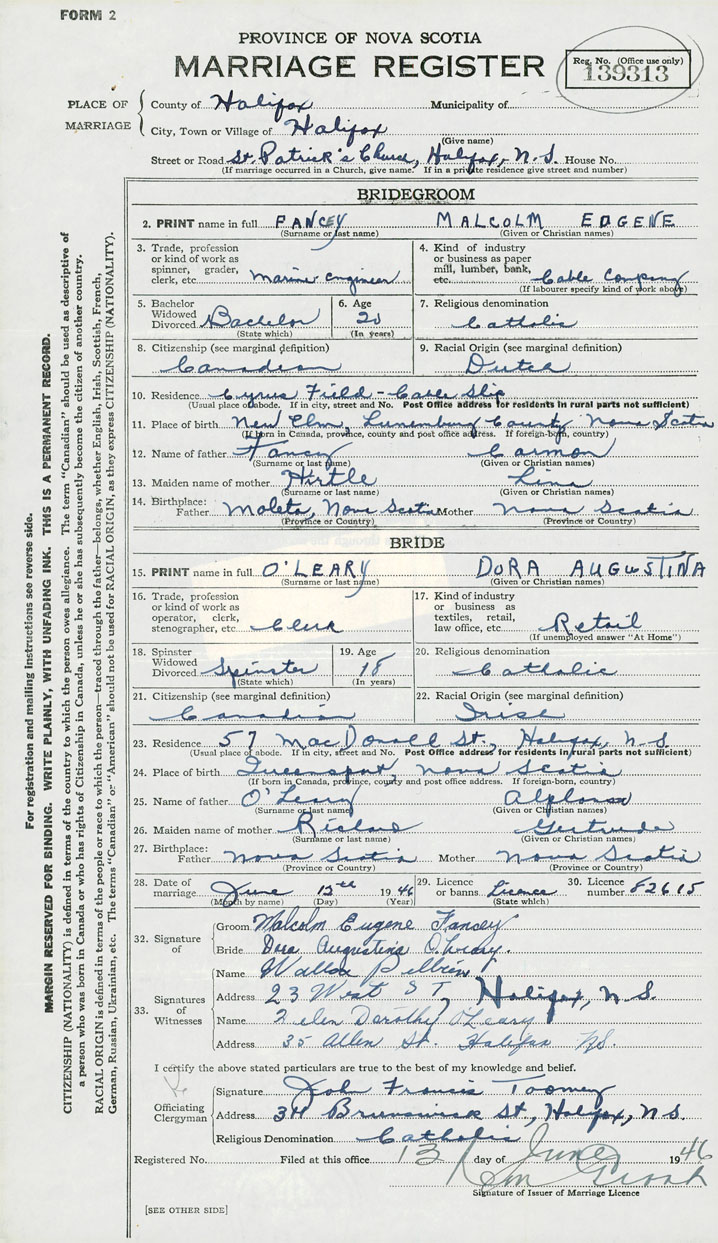 FORM 2
PROVINCE OF NOVA SCOTIA
MARRIAGE REGISTER
Reg. No. (Office use only)
139313
PLACE OF MARRIAGE
County of Halifax Municipality of
City, Town or Village of Halifax
(Give name)
Street or Road St. Patrick's Church, Halifax, N.S. House No.
(If marriage occurred in a Church, give name. If in a private residence give street and number)
BRIDEGROOM
2. PRINT name in full FANCEY MALCOLM EUGENE
(Surname or last name) (Given or Christian names)
3. Trade, profession or kind of work as spinner, grader, clerk, etc. Marine Engineer
4. Kind of industry or business as paper mill, lumber, bank, etc. Cable Company
(If labourer specify kind of work above)
5. Bachelor Widowed Divorced Bachelor
(State which)
6. Age 20
(In years)
7. Religious denomination Catholic
8. Citizenship (see marginal definition) Canadian
9. Racial Origin (see marginal definition) Dutch
10. Residence Cyrus Field - Cable Ship
(Usual place of abode. If in city, street and No. Post Office address for residents in rural parts not sufficient)
11. Place of birth New Elm, Lunenburg County Nova Scotia
(If born in Canada, province, county and post office address. If foreign-born, country)
12. Name of father Fancey Carmon
(Surname or last name) (Given or Christian names)
13. Maiden name of mother Hirtle Lina
(Surname or last name) (Given or Christian names)
14. Birthplace: Father Nova Scotia Mother Nova Scotia
(Province or Country) (Province or Country)
BRIDE
15. PRINT name in full O'LEARY DORA AUGUSTINA
(Surname or last name) (Given or Christian names)
16. Trade, profession or kind of work as operator, clerk, stenographer, etc. Clerk
17. Kind of industry or business as textiles, retail, law office, etc. Retail
(If unemployed answer "At Home")
18. Spinster Widowed Divorced Spinster
(State which)
19. Age 18
(In years)
20. Religious denomination Catholic
21. Citizenship (see marginal definition) Canadian
22. Racial Origin (see marginal definition) Irish
23. Residence 57 MacDonald St., Halifax, N.S.
(Usual place of abode. If in city, street and No. Post Office address for residents in rural parts not sufficient)
24. Place of birth Queensport, Nova Scotia
(If born in Canada, province, county and post office address. If foreign-born, country)
25. Name of father O'Leary Alphonse
(Surname or last name) (Given or Christian names)
26. Maiden name of mother Richard Gertrude
(Surname or last name) (Given or Christian names)
27. Birthplace: Father Nova Scotia Mother Nova Scotia
(Province or Country) (Province or Country)
28. Date of marriage June 12th 1946
(Month by name) (Day) (Year)
29. Licence or banns Licence
(State which)
30. Licence number F2615
32. Signature of
Groom Malcolm Eugene Fancey
Bride Dora Augustina O'Leary.
33. Signatures of Witnesses
Name
Address 23 West ST, Halifax, N.S.
Name Helen Dorothy O'Leary
Address 35 Allen St. Halifax NS.
I certify the above stated particulars are true to the best of my knowledge and belief.
Officiating Clergyman
Signature John Francis Toomey
Address 34 Brunswick St., Halifax, N.S.
Religious Denomination Catholic
Registered No. Filed at this office 13 day of June 1946
Signature of Issuer of Marriage Licence
[SEE OTHER SIDE]
For registration and mailing instructions see reverse side.
MARGIN RESERVED FOR BINDING. WRITE PLAINLY, WITH UNFADING INK. THIS IS A PERMANENT RECORD.
CITIZENSHIP (NATIONALITY) is defined in terms of the country to which the person owes allegiance. The term "Canadian" should be used as descriptive of
a person who was born in Canada or who has rights of Citizenship in Canada, unless he or she has subsequently become the citizen of another country.
RACIAL ORIGIN is defined in terms of the people or race to which the person—traced through the father—belongs, whether English, Irish, Scottish, French,
German, Russian, Ukrainian, etc. The terms "Canadian" or "American" should not be used for RACIAL ORIGIN, as they express CITIZENSHIP (NATIONALITY).